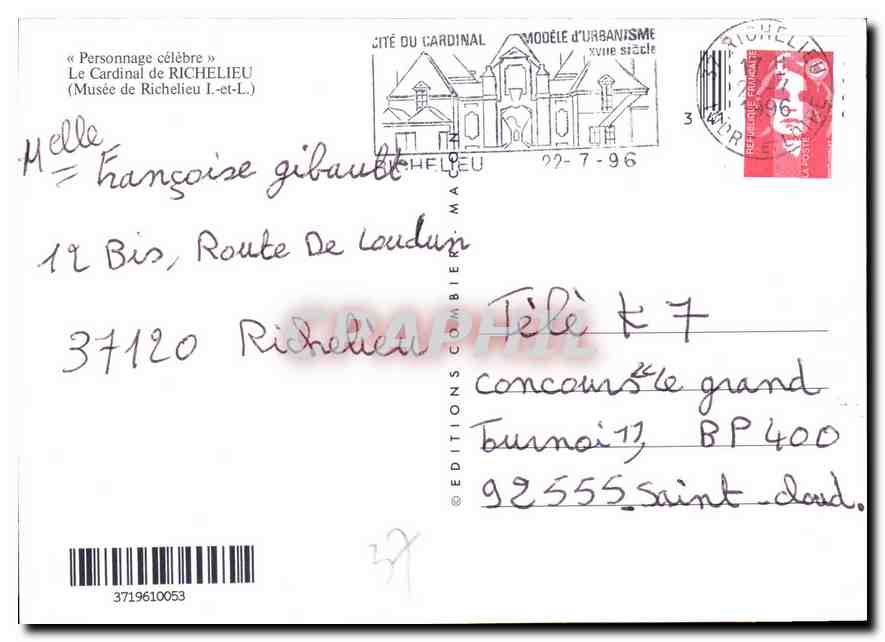 « Personnage célèbre »
Le Cardinal de RICHELIEU
(Musée de Richelieu I.-et-L.)
CITÉ DU CARDINAL MODÈLE d'URBANISME
XVIIe siècle
RICHELIEU 22-7-96
RICHELIEU
1996
3 41
RÉPUBLIQUE FRANÇAISE
LA POSTE
Melle Françoise gibault
12 Bis, Route De Loudun
37120 Richelieu
Télè K 7
concours "le grand
Tournoi", BP 400
92555 Saint-cloud.
© EDITIONS COMBIER MACON
CPAPHIL
37
3719610053